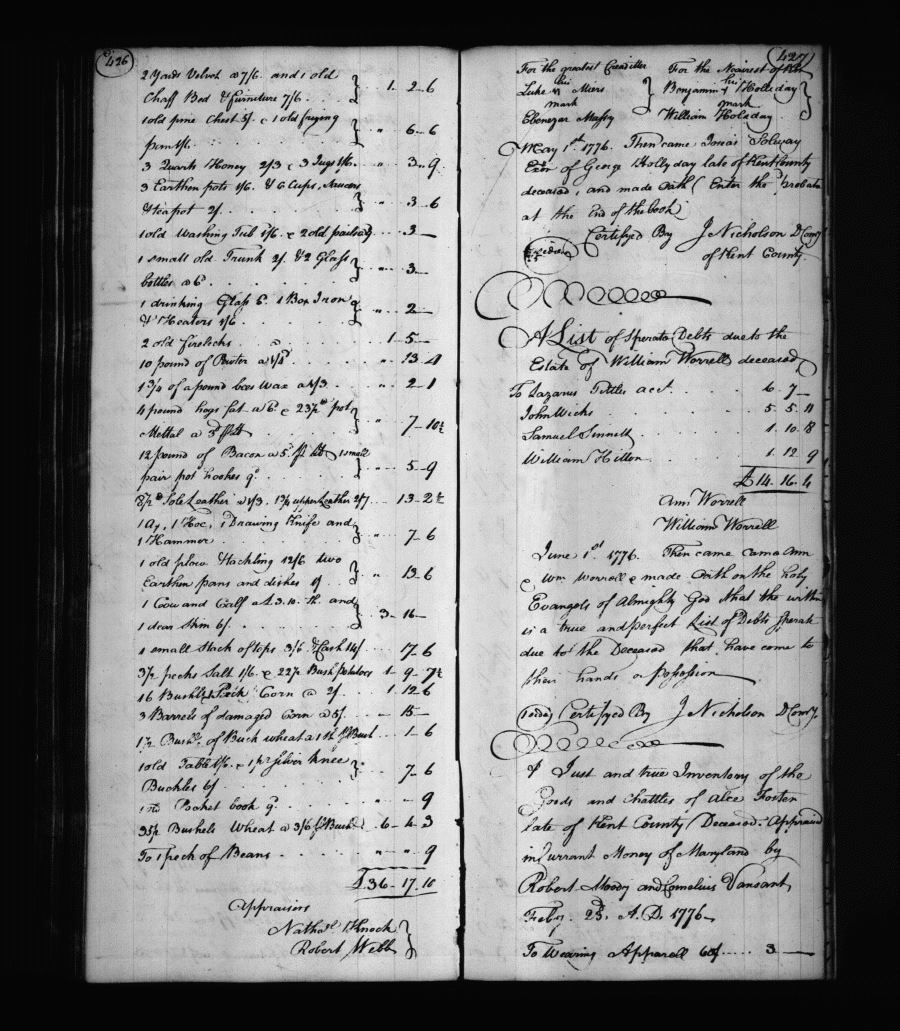 426
2 Yards Velvet a 7/6. and 1 old
Chaff Bed & furniture 7/6 . . . 1 - 2 - 6
1 old pine Chest 5/. & 1 old frying
pan 1/6. . . . " 6 - 6
3 Quarts Honey 2/3 & 3 Jugs 1/6. . " 3 - 9
3 Earthen pots 1/6. & 6 Cups, Saucers
& teapot 2/. . . . . " 3 - 6
1 old Washing Tub 1/6. & 2 old pails . . . 3 —
1 small old Trunk 2/. & 2 Glass
bottles a 6d . . . . . " 3 —
1 drinking Glass 6d. 1 Box Iron
& Heaters 1/6 . . . . . " 2 —
2 old firelocks . . . 1 - 5 —
10 pound of Pewter a 1/4d . . " 13 - 4
1 3/4 of a pound bees Wax a 1/3 . . . " 2 - 1
4 pound hogs fat a 6d. & 23 1/2 lb pot
Mettal a 3d . . . " 7 - 10 1/2
12 pound of Bacon a 5d. 1 small
pair pot hookes 9d. . . . " 5 - 9
8 1/2 lb Sole Leather a 1/3. 1 3/4 upper Leather 2/7 . . 13 - 2 1/2
1 Ax, 1 Hoe, 1 Drawing Knife and
1 Hammer . . . . . 7 - 6
1 old plow Hackling 12/6 two
Earthen pans and dishes 1/. . " 13 - 6
1 Cow and Calf a £3.10. and
1 dear Skin 6/. . . . 3 - 16 —
1 small Stack of tops 3/6 & Cash 14/ . . . 17 - 6
3 1/2 pecks Salt 1/6. & 22 1/2 Bush. potatoes 1 - 9 - 7 1/2
16 Bushls & 1 Peck Corn @ 2/. . . 1 . 12 - 6
3 Barrels of damaged Corn a 5/. . . — 15 —
1 1/2 Bushls. of Buck wheat a 1/ Bush . . . 1 - 6
1 old Table 1/6. & 1 pr Silver knee
Buckles 6/ . . . . . 7 - 6
1 Pocket book 9d. . . . . " — 9
35 1/2 Bushels Wheat a 3/6 Bush . . 6 - 4 - 3
To 1 peck of Beans . . . . . . " " 9
£36 - 17 . 10
Appraisers
Nathal Knock
Robert Webb
427
For the greatest Creaditer For the Nearest of Kin
his his
Luke Miers Benjamin Holliday
mark mark
Ebenezer Massy William Holiday
May 1st. 1776. Then came Jonas Solway
Exor of George Hollyday late of Kent County
deceased, and made oath (Enter the probate
at the End of the book)
Certifyed By J Nicholson D Comy
of Kent County.
A List of Sperate Debts due to the
Estate of William Worrell deceased
To Lazarus Tittles acct. . . . . 6 . 7 —
John Wicks . . . . . . 5 . 5 . 11
Samuel Sinnett . . . . . 1 . 10 . 8
William Hilton . . . . . 1 . 12 9
£ 14 - 16 . 4
Ann Worrell
William Worrell
June 1st. 1776. Then came came Ann
& Wm Worrell & made Oath on the holy
Evangels of Almighty God that the within
is a true and perfect List of Debts Sperate
due to the Deceased that have come to
their hands or Possession
Certifyed By J Nicholson D Comy.
A Just and true Inventory of the
Goods and Chattles of Alce Foster
late of Kent County Deceased Appraised
in Currant Money of Maryland by
Robert Moody and Cornelius Vansant
Feby. 23d. A.D. 1776
To Wearing Apparell 60/ . . . . . 3 —